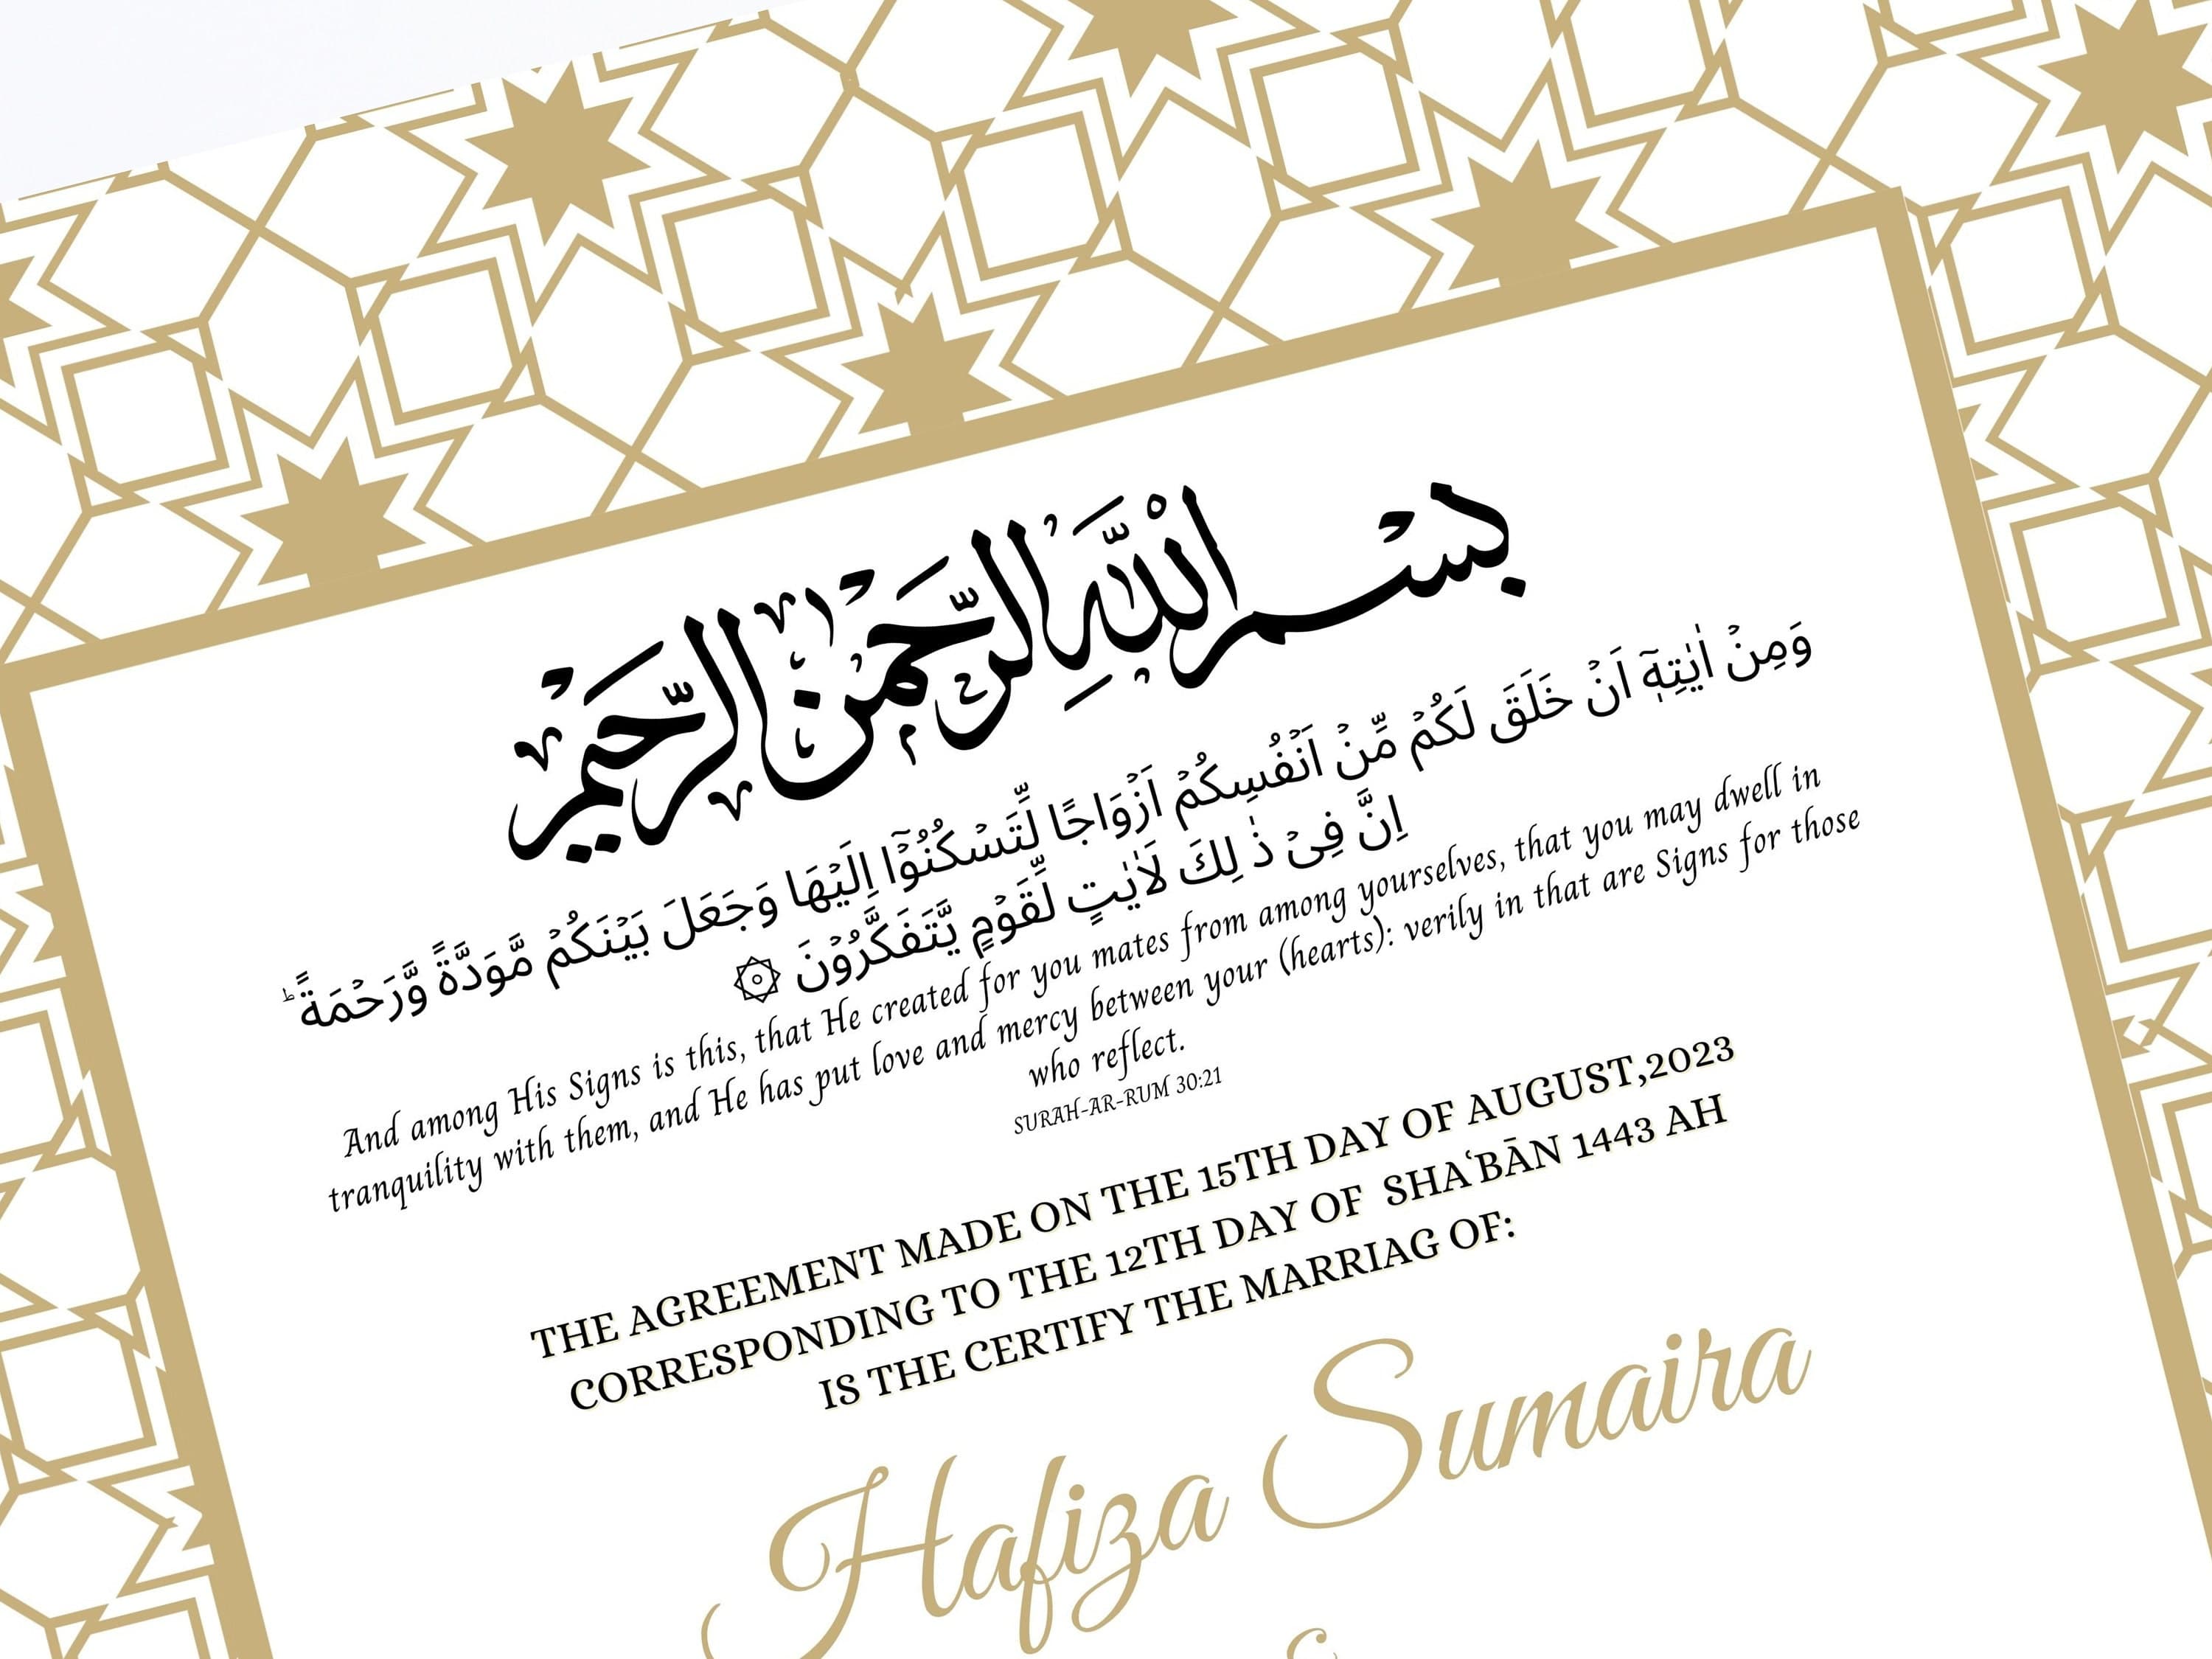 بِسْمِ اللَّهِ الرَّحْمَٰنِ الرَّحِيمِ
وَمِنۡ اٰيٰتِهٖۤ اَنۡ خَلَقَ لَكُمۡ مِّنۡ اَنۡفُسِكُمۡ اَزۡوَاجًا لِّتَسۡكُنُوۡۤا اِلَيۡهَا وَجَعَلَ بَيۡنَكُمۡ مَّوَدَّةً وَّرَحۡمَةً ؕ
اِنَّ فِىۡ ذٰ لِكَ لَاٰيٰتٍ لِّقَوۡمٍ يَّتَفَكَّرُوۡنَ ۞
And among His Signs is this, that He created for you mates from among yourselves, that you may dwell in
tranquility with them, and He has put love and mercy between your (hearts): verily in that are Signs for those
who reflect.
SURAH-AR-RUM 30:21
THE AGREEMENT MADE ON THE 15TH DAY OF AUGUST,2023
CORRESPONDING TO THE 12TH DAY OF SHAʿBĀN 1443 AH
IS THE CERTIFY THE MARRIAG OF:
Hafiza Sumaira